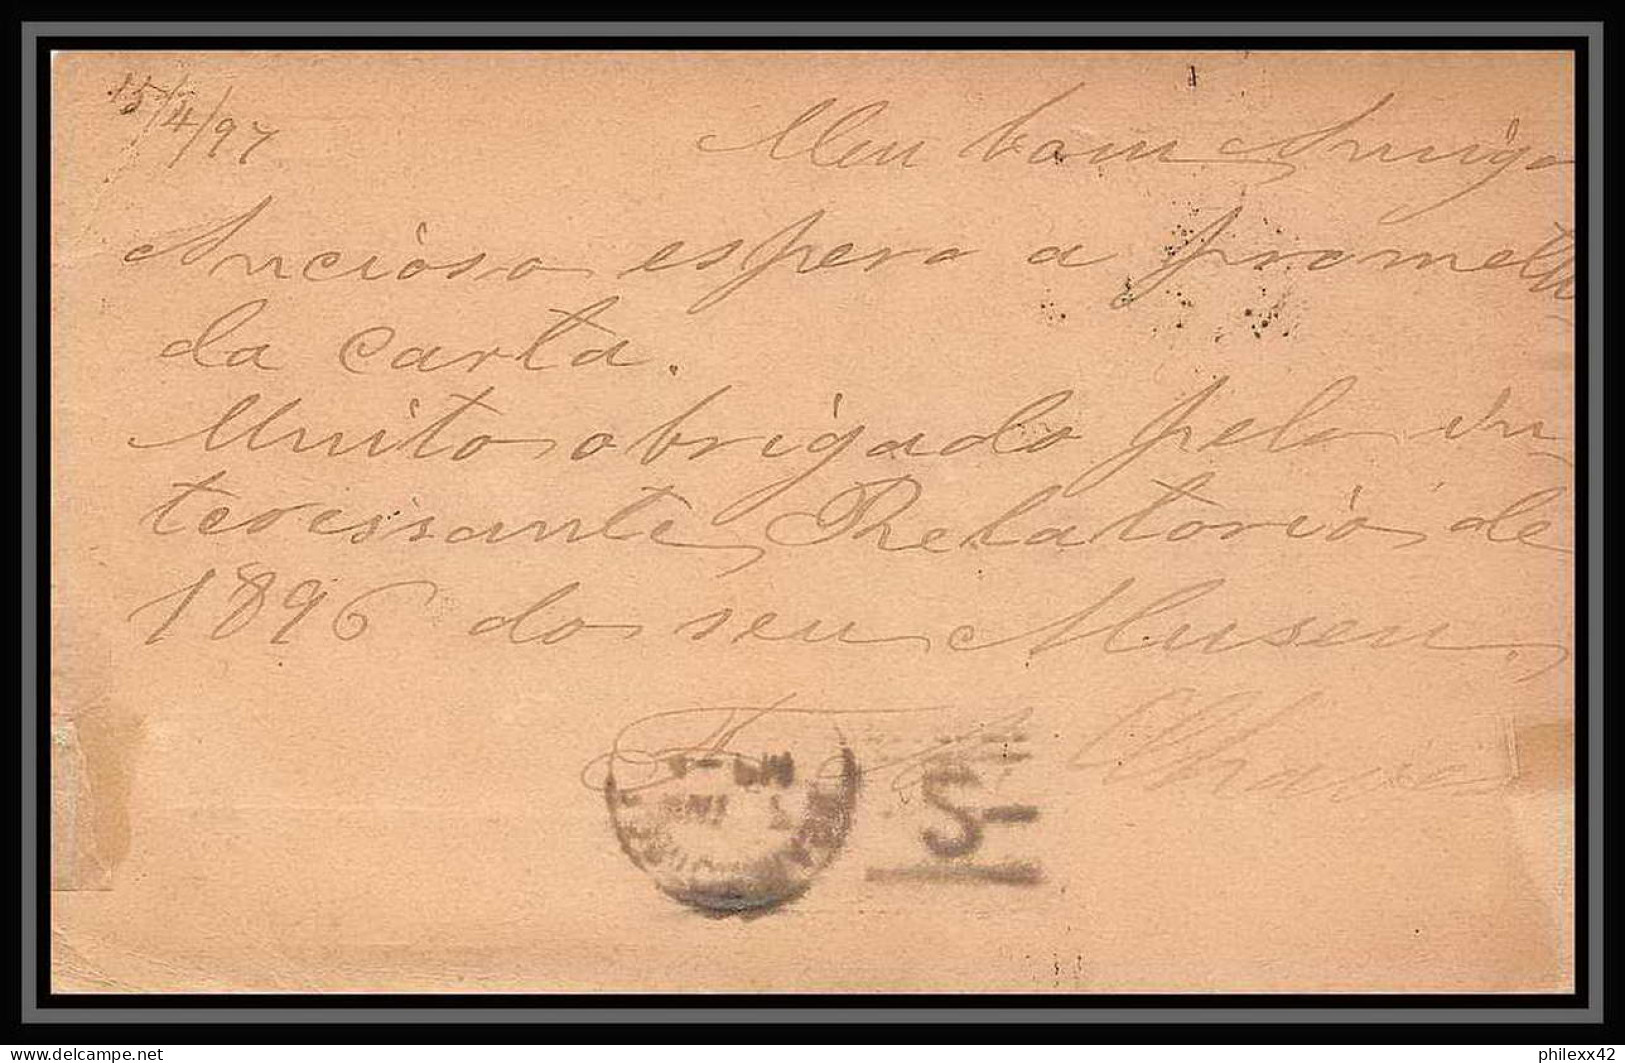 15/4/97
Meu bom Amigo
Ancioso espero a prometti
da carta.
Muito obrigado pelo in-
teressante Relatorio de
1896 do seu Museu.
Chaves
S-
delcampe.net
philexx42